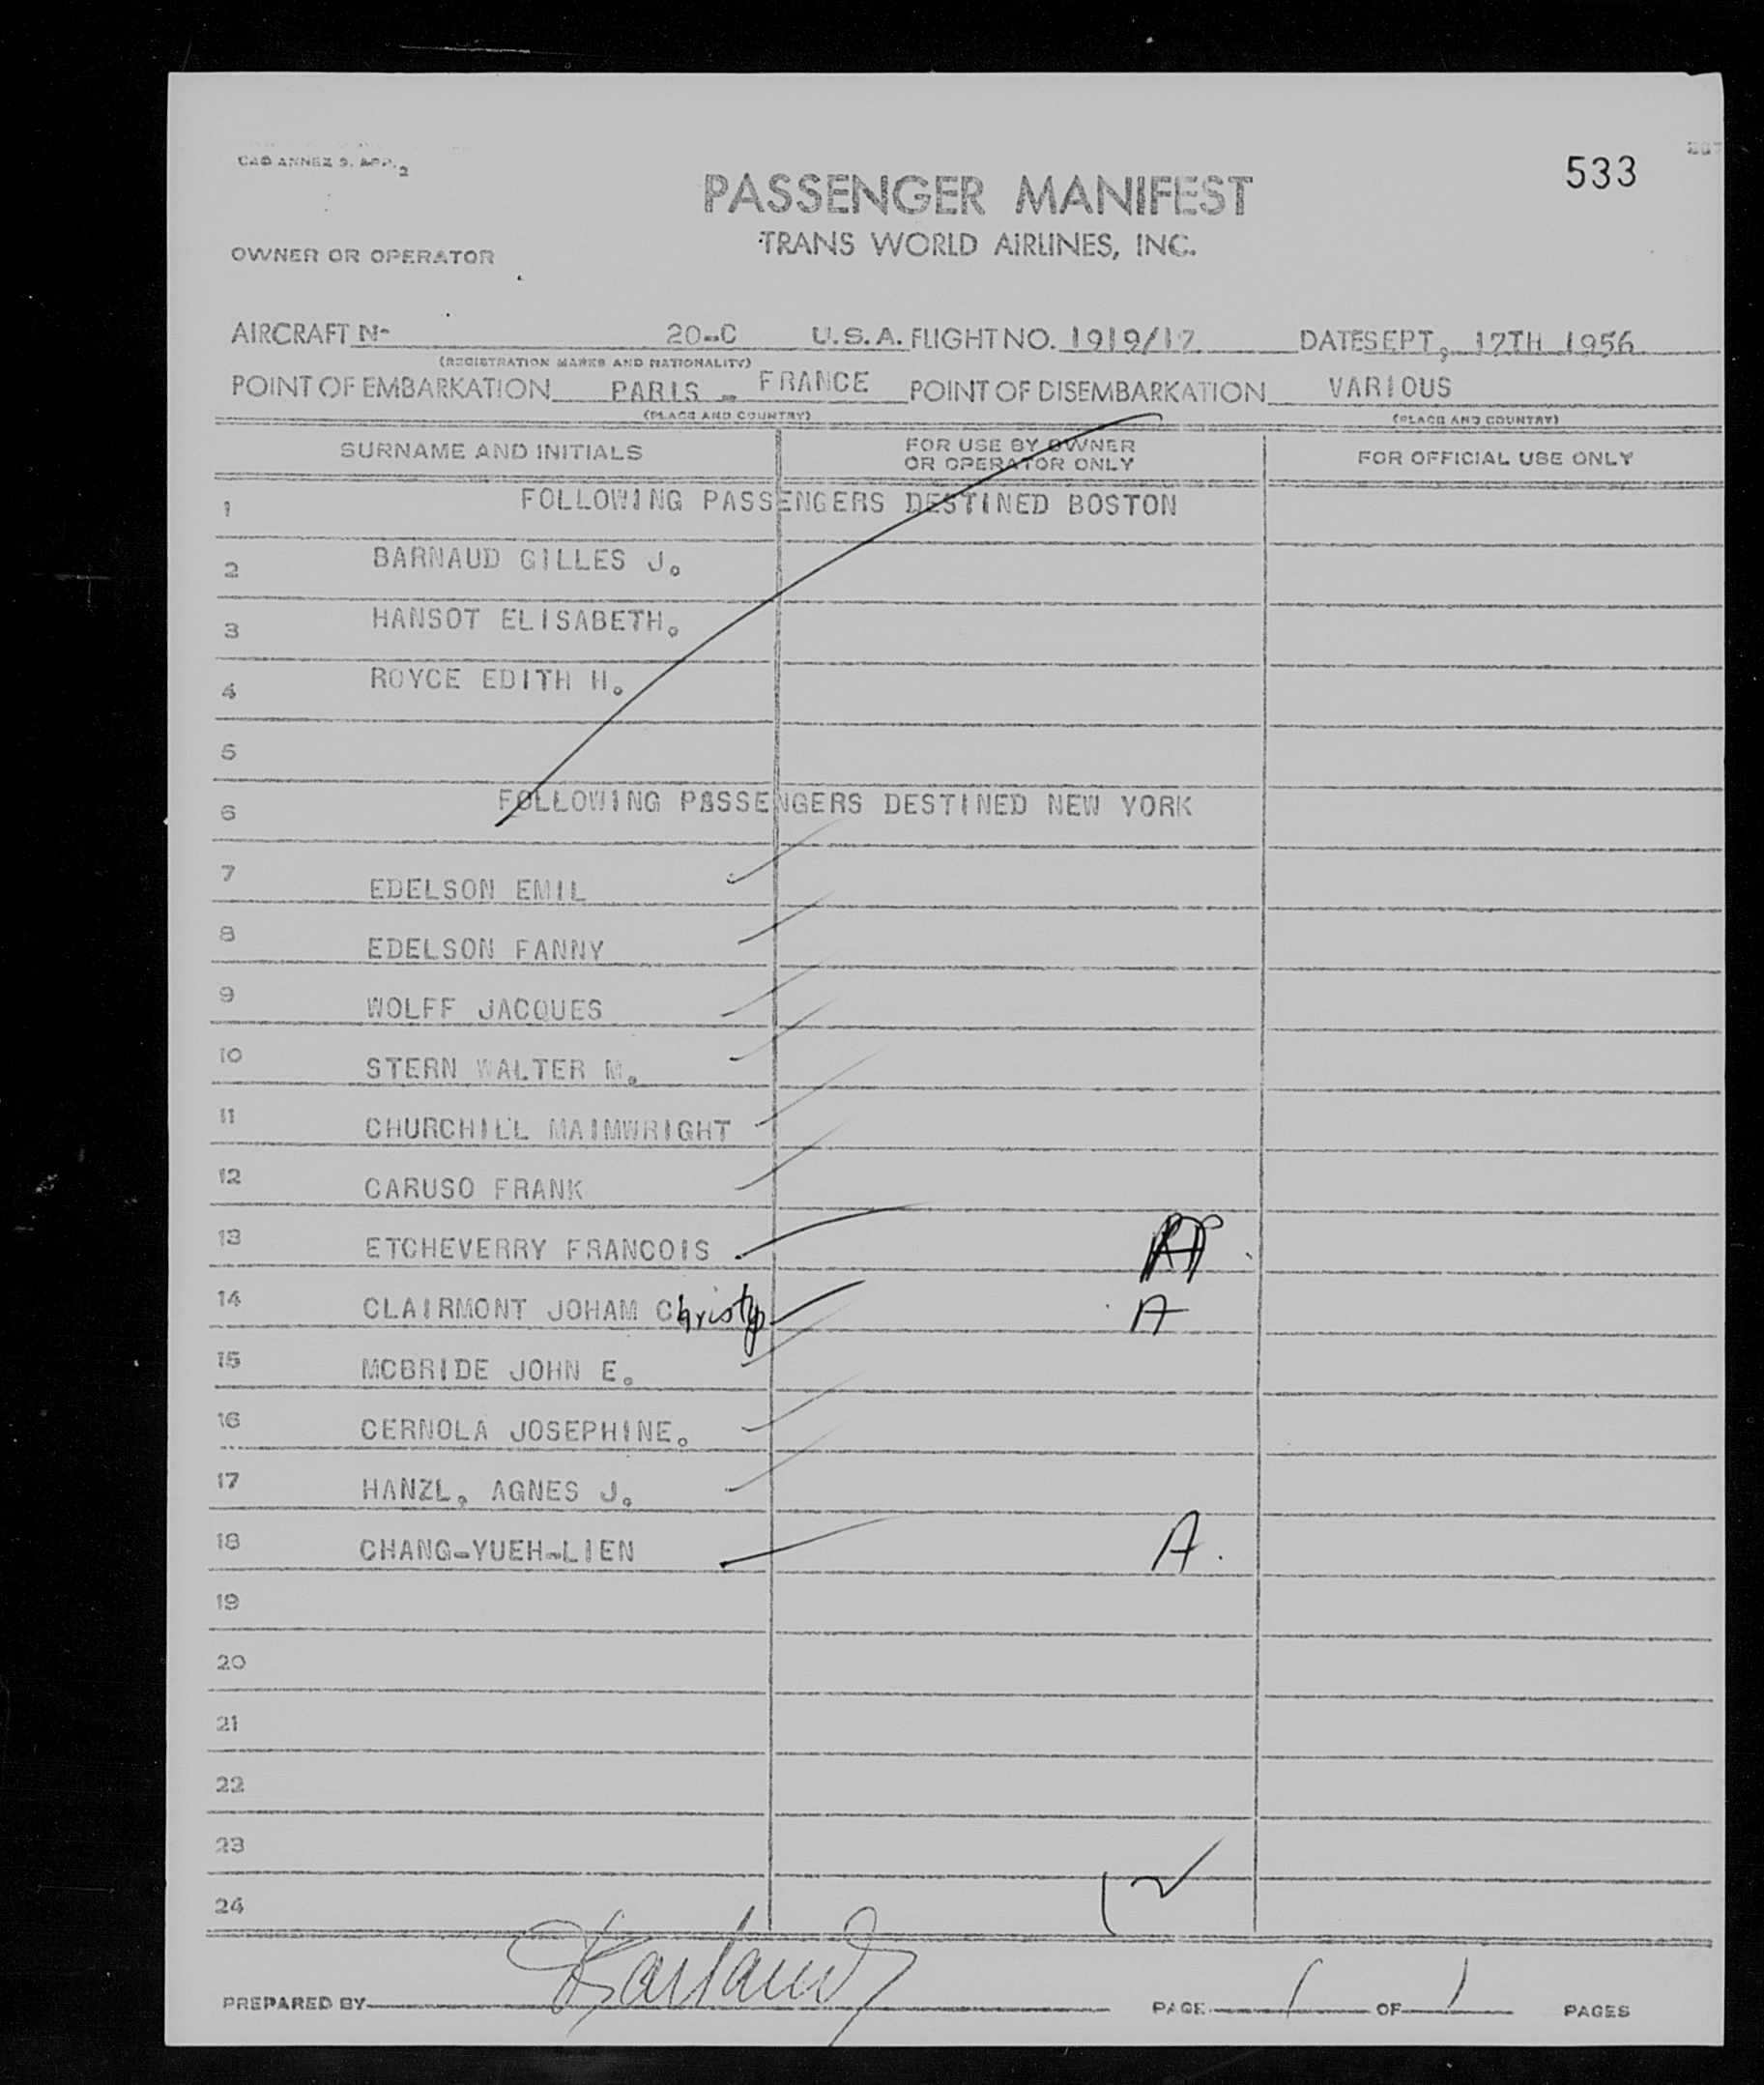 CAO ANNEX 9. APP. 2
533
PASSENGER MANIFEST
TRANS WORLD AIRLINES, INC.
OWNER OR OPERATOR
AIRCRAFT N- 20-C U.S.A. FLIGHT NO. 1919/17 DATE SEPT, 17TH 1956
(REGISTRATION MARKS AND NATIONALITY)
POINT OF EMBARKATION PARIS - FRANCE POINT OF DISEMBARKATION VARIOUS
(PLACE AND COUNTRY) (PLACE AND COUNTRY)
SURNAME AND INITIALS FOR USE BY OWNER OR OPERATOR ONLY FOR OFFICIAL USE ONLY
1 FOLLOWING PASSENGERS DESTINED BOSTON
2 BARNAUD GILLES J.
3 HANSOT ELISABETH.
4 ROYCE EDITH H.
5
6 FOLLOWING PASSENGERS DESTINED NEW YORK
7 EDELSON EMIL
8 EDELSON FANNY
9 WOLFF JACQUES
10 STERN WALTER M.
11 CHURCHILL MAIMWRIGHT
12 CARUSO FRANK
13 ETCHEVERRY FRANCOIS
14 CLAIRMONT JOHAM Christop A
15 MCBRIDE JOHN E.
16 CERNOLA JOSEPHINE.
17 HANZL, AGNES J.
18 CHANG-YUEH-LIEN A.
19
20
21
22
23
24
12
PREPARED BY PAGE 1 OF 1 PAGES